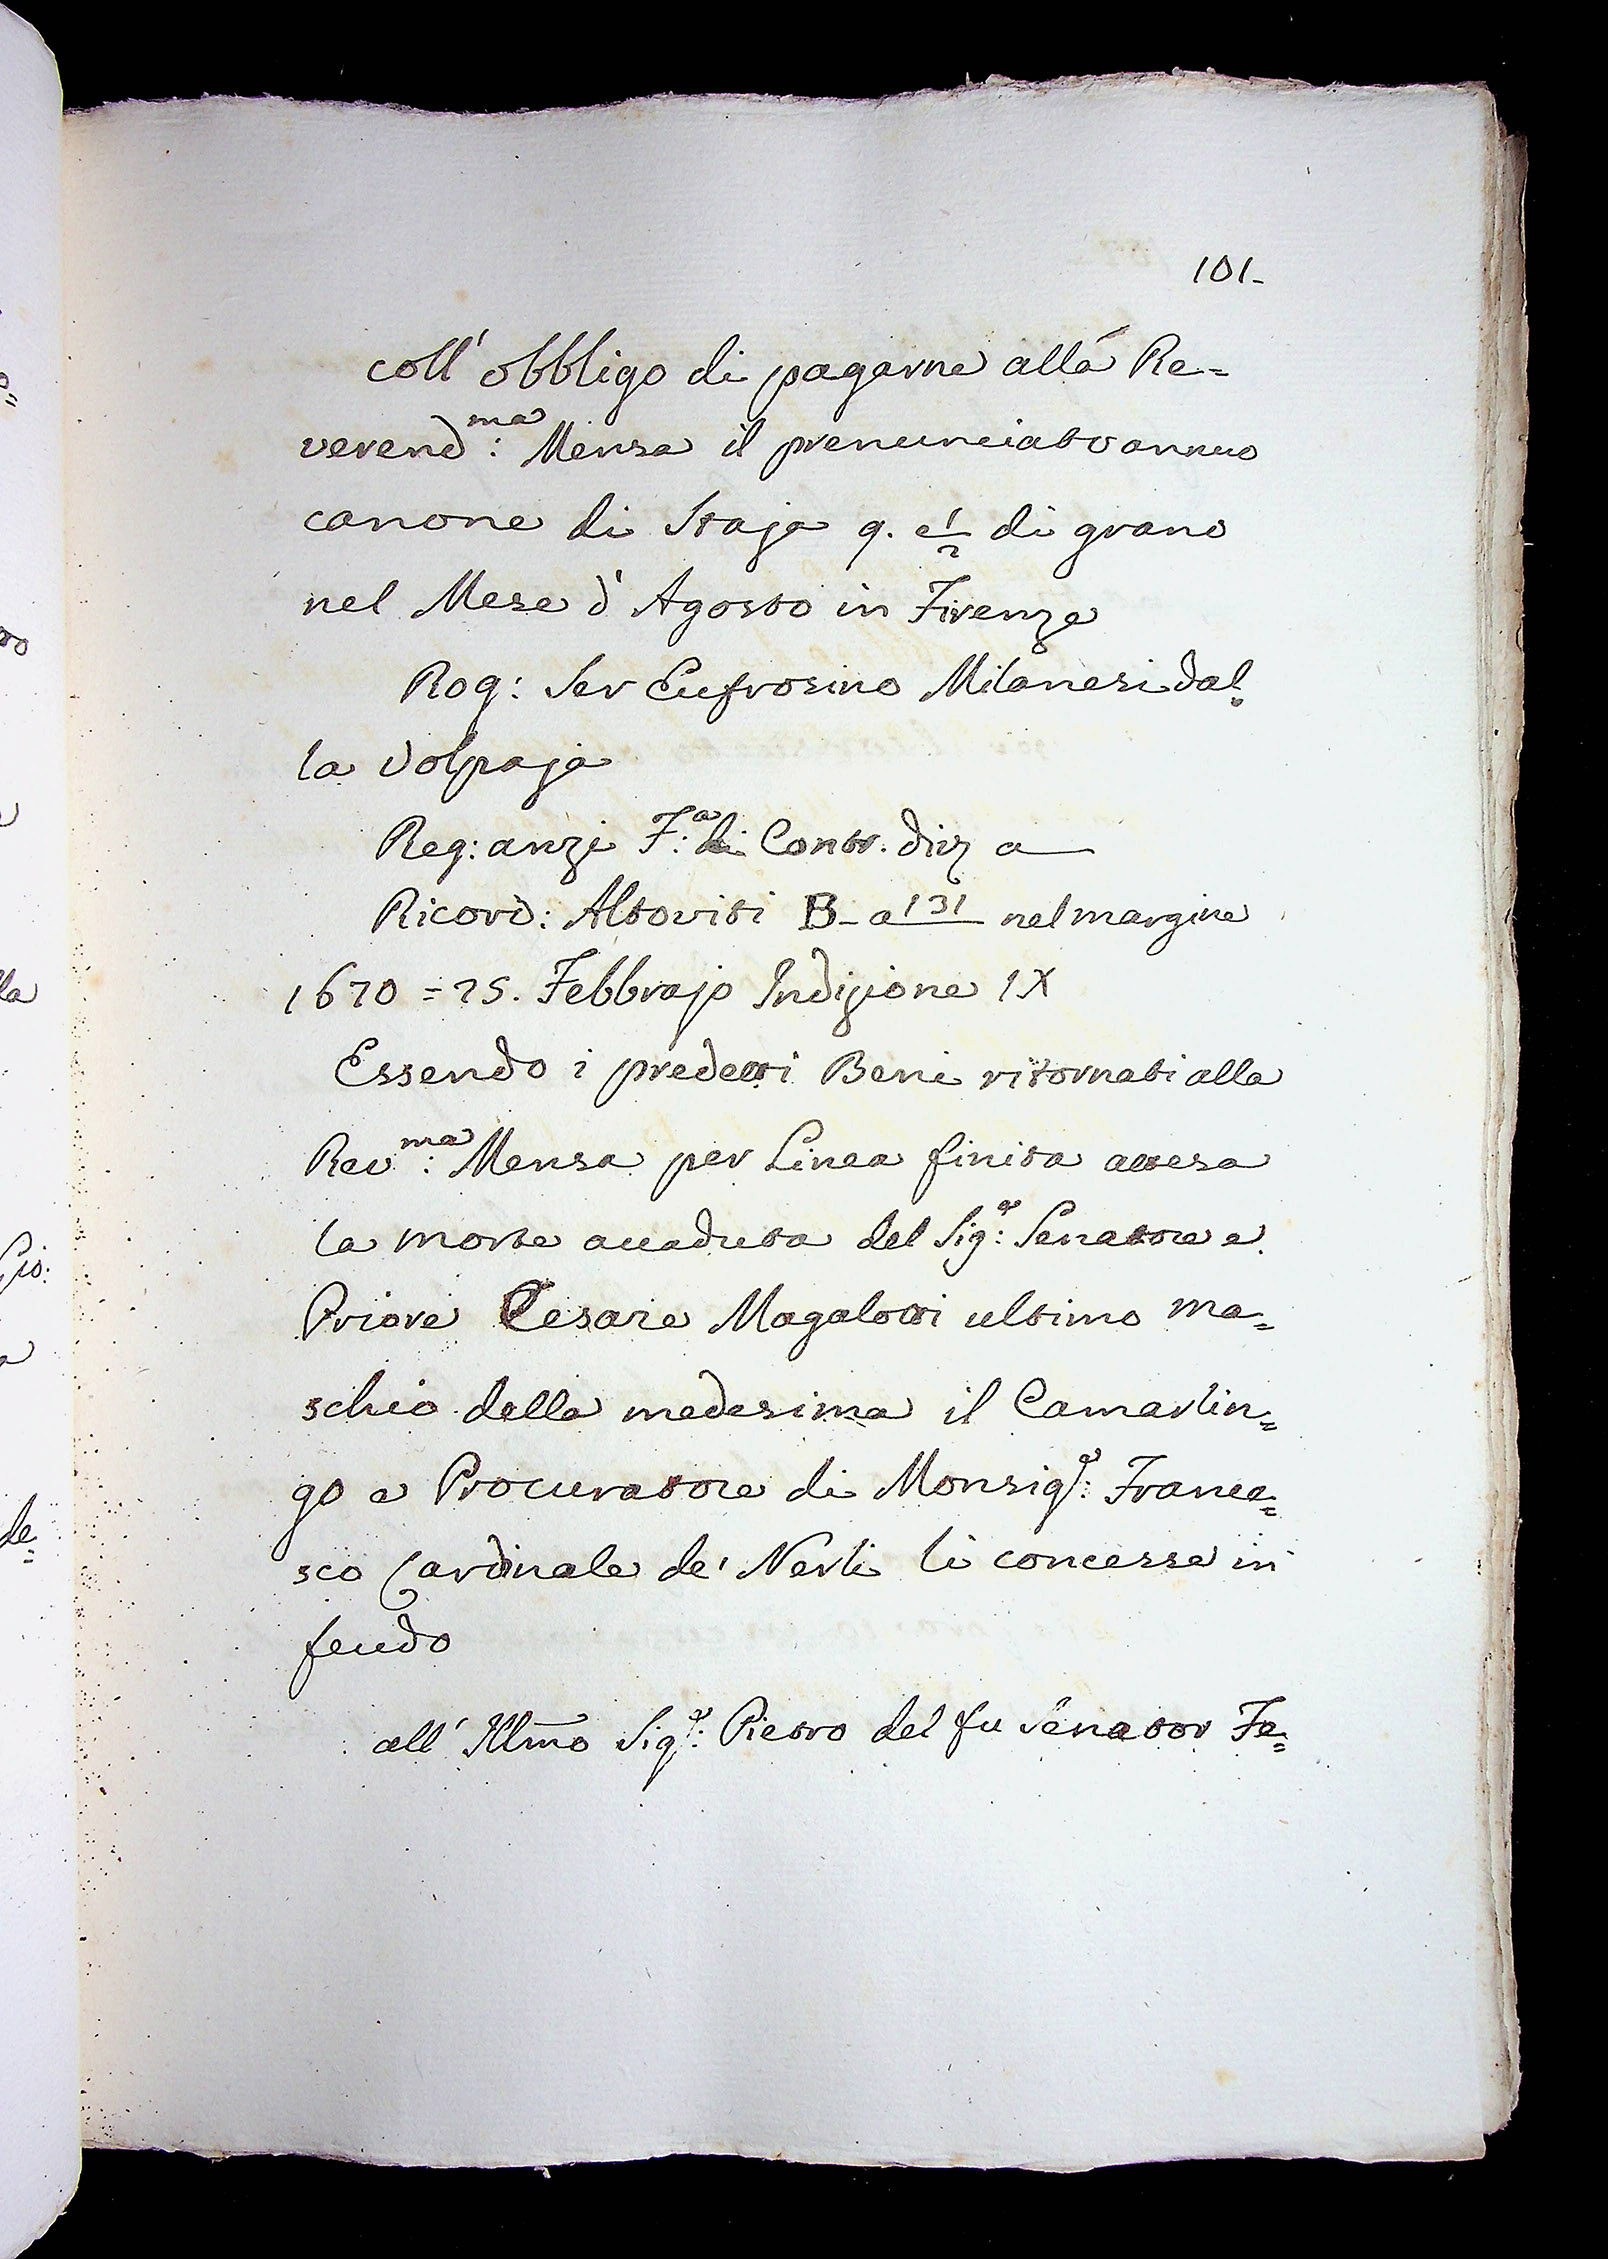 101.
coll' obbligo di pagarne alla Re=
verend:ma Mensa il prenunciato annuo
canone di Staja 9. e 1/2 di grano
nel Mese d'Agosto in Firenze
Rog: Ser Eufrosino Milanesi dal=
la Volpaja
Reg: anzi F:a di Contr. diz a
Ricord: Altoviti B- a 131 nel margine
1670 = 25. Febbrajo Indizione IX
Essendo i predetti Beni ritornati alla
Rev:ma Mensa per Linea finita attesa
la morte accaduta del Sig:e Senatore e
Priore Cesare Magalotti ultimo ma=
schio della medesima il Camarlin=
go e Procuratore di Monsig:e France=
sco Cardinale de' Nerli li concesse in
feudo
all' Illmo Sig:e Pietro del fu Senator Fe=